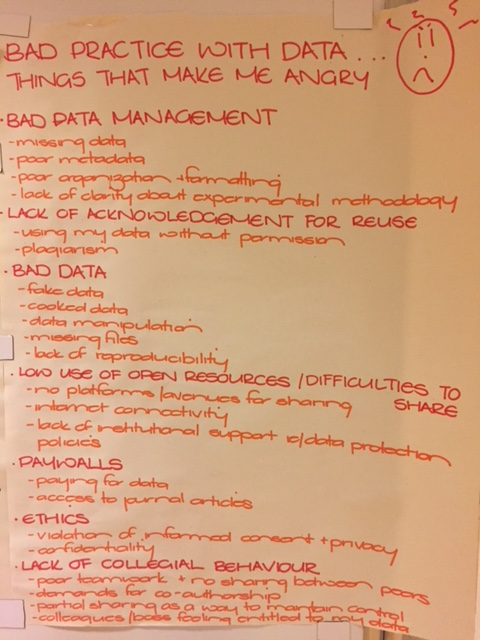 BAD PRACTICE WITH DATA...
THINGS THAT MAKE ME ANGRY
· BAD DATA MANAGEMENT
- missing data
- poor metadata
- poor organization + formatting
- lack of clarity about experimental methodology
· LACK OF ACKNOWLEDGEMENT FOR REUSE
- using my data without permission
- plagiarism
· BAD DATA
- fake data
- cooked data
- data manipulation
- missing files
- lack of reproducibility
· LOW USE OF OPEN RESOURCES / DIFFICULTIES TO
SHARE
- no platforms/avenues for sharing
- internet connectivity
- lack of institutional support ie/data protection
policies
· PAYWALLS
- paying for data
- access to journal articles
· ETHICS
- violation of informed consent + privacy
- confidentiality
· LACK OF COLLEGIAL BEHAVIOUR
- poor teamwork + no sharing between peers
- demands for co-authorship
- partial sharing as a way to maintain control
- colleagues/boss feeling entitled to my data